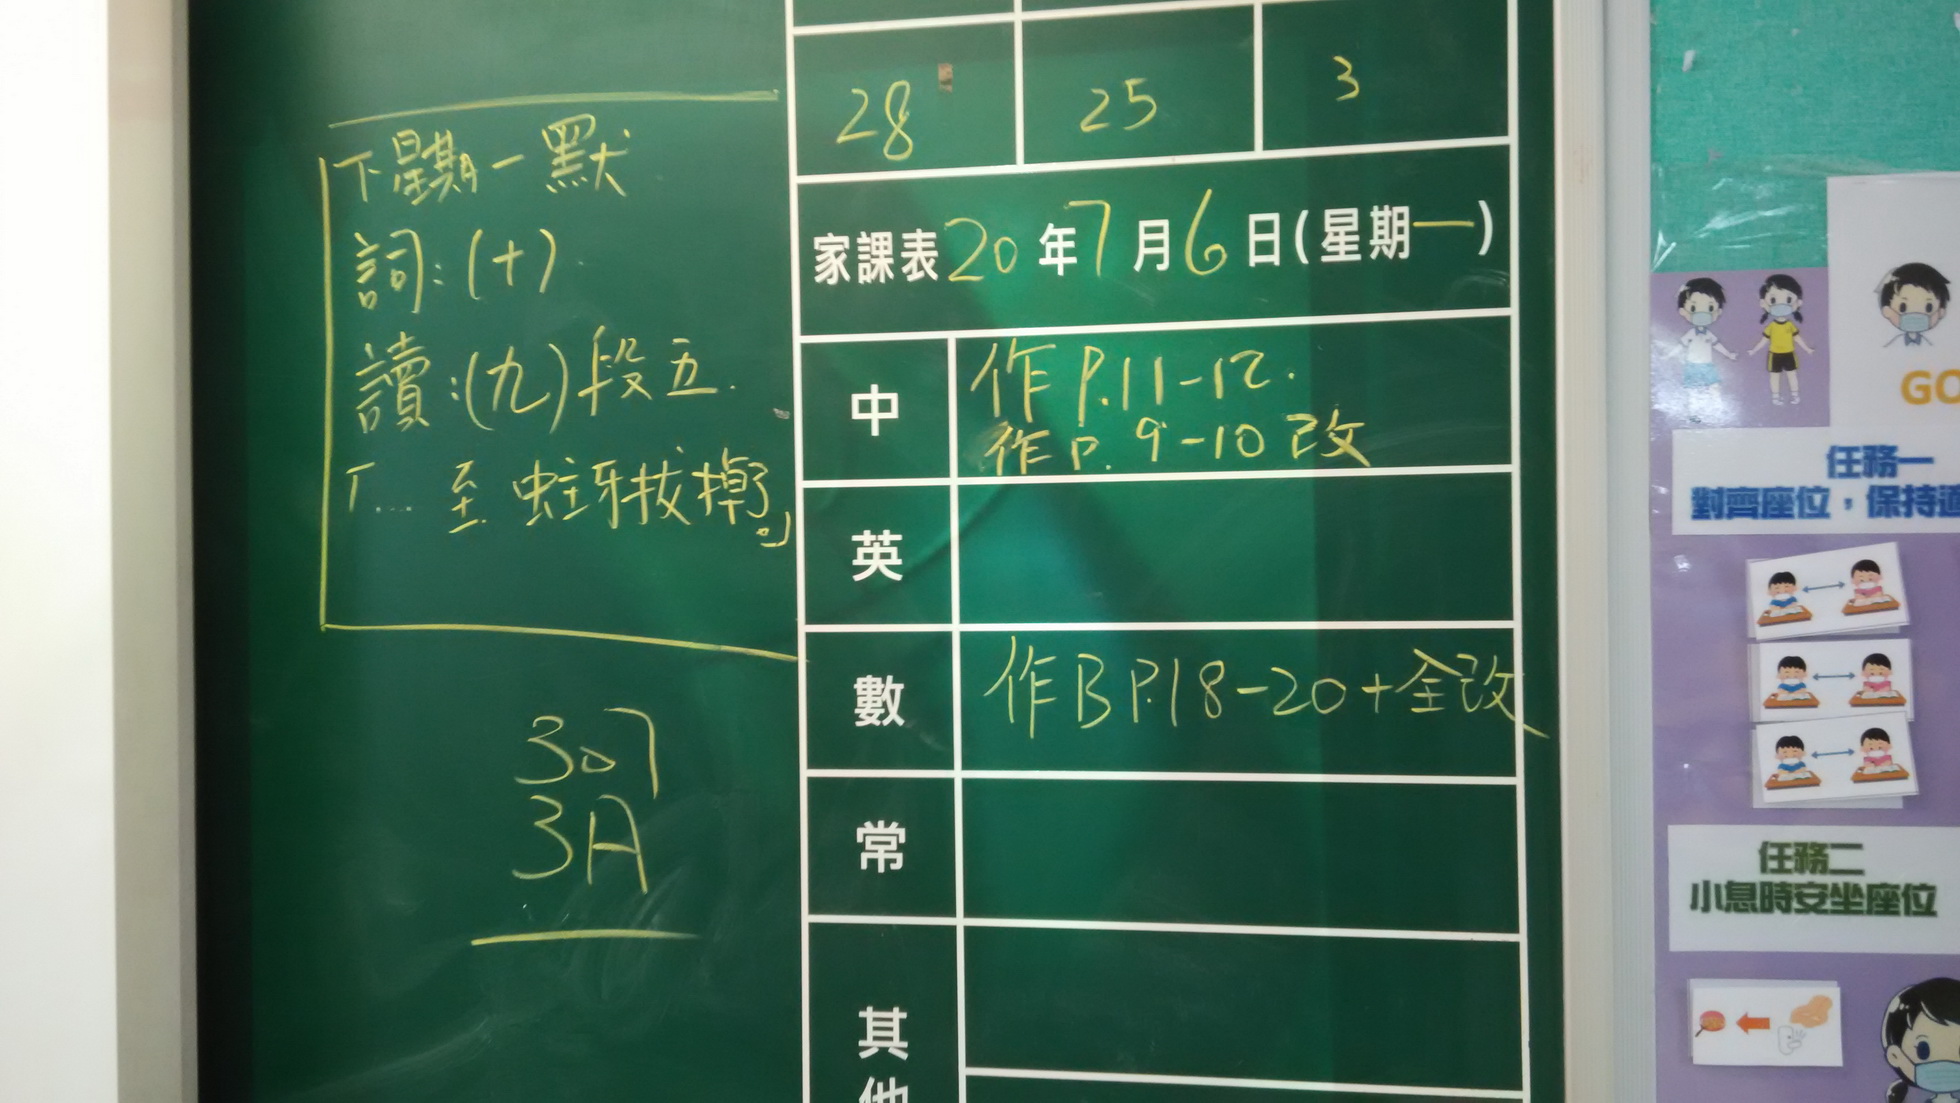 下星期一默
詞:(十)
讀:(九)段五.
「... 至 蛀牙拔掉了。」
307
3A
28 25 3
家課表20年7月6日(星期一)
中 作 P.11-12.
作 P. 9-10 改
英
數 作B P.18-20+全改
常
其他
GO
任務一
對齊座位，保持
任務二
小息時安坐座位